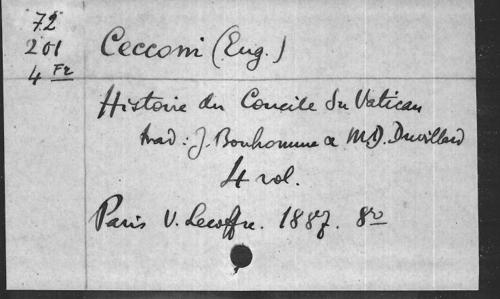 72
201
4 Fr
Cecconi (Eug.)
Histoire du Concile du Vatican
trad: J. Bonhomme & M.D. Duvillard
4 vol.
Paris V. Lecoffre. 1887. 8vo